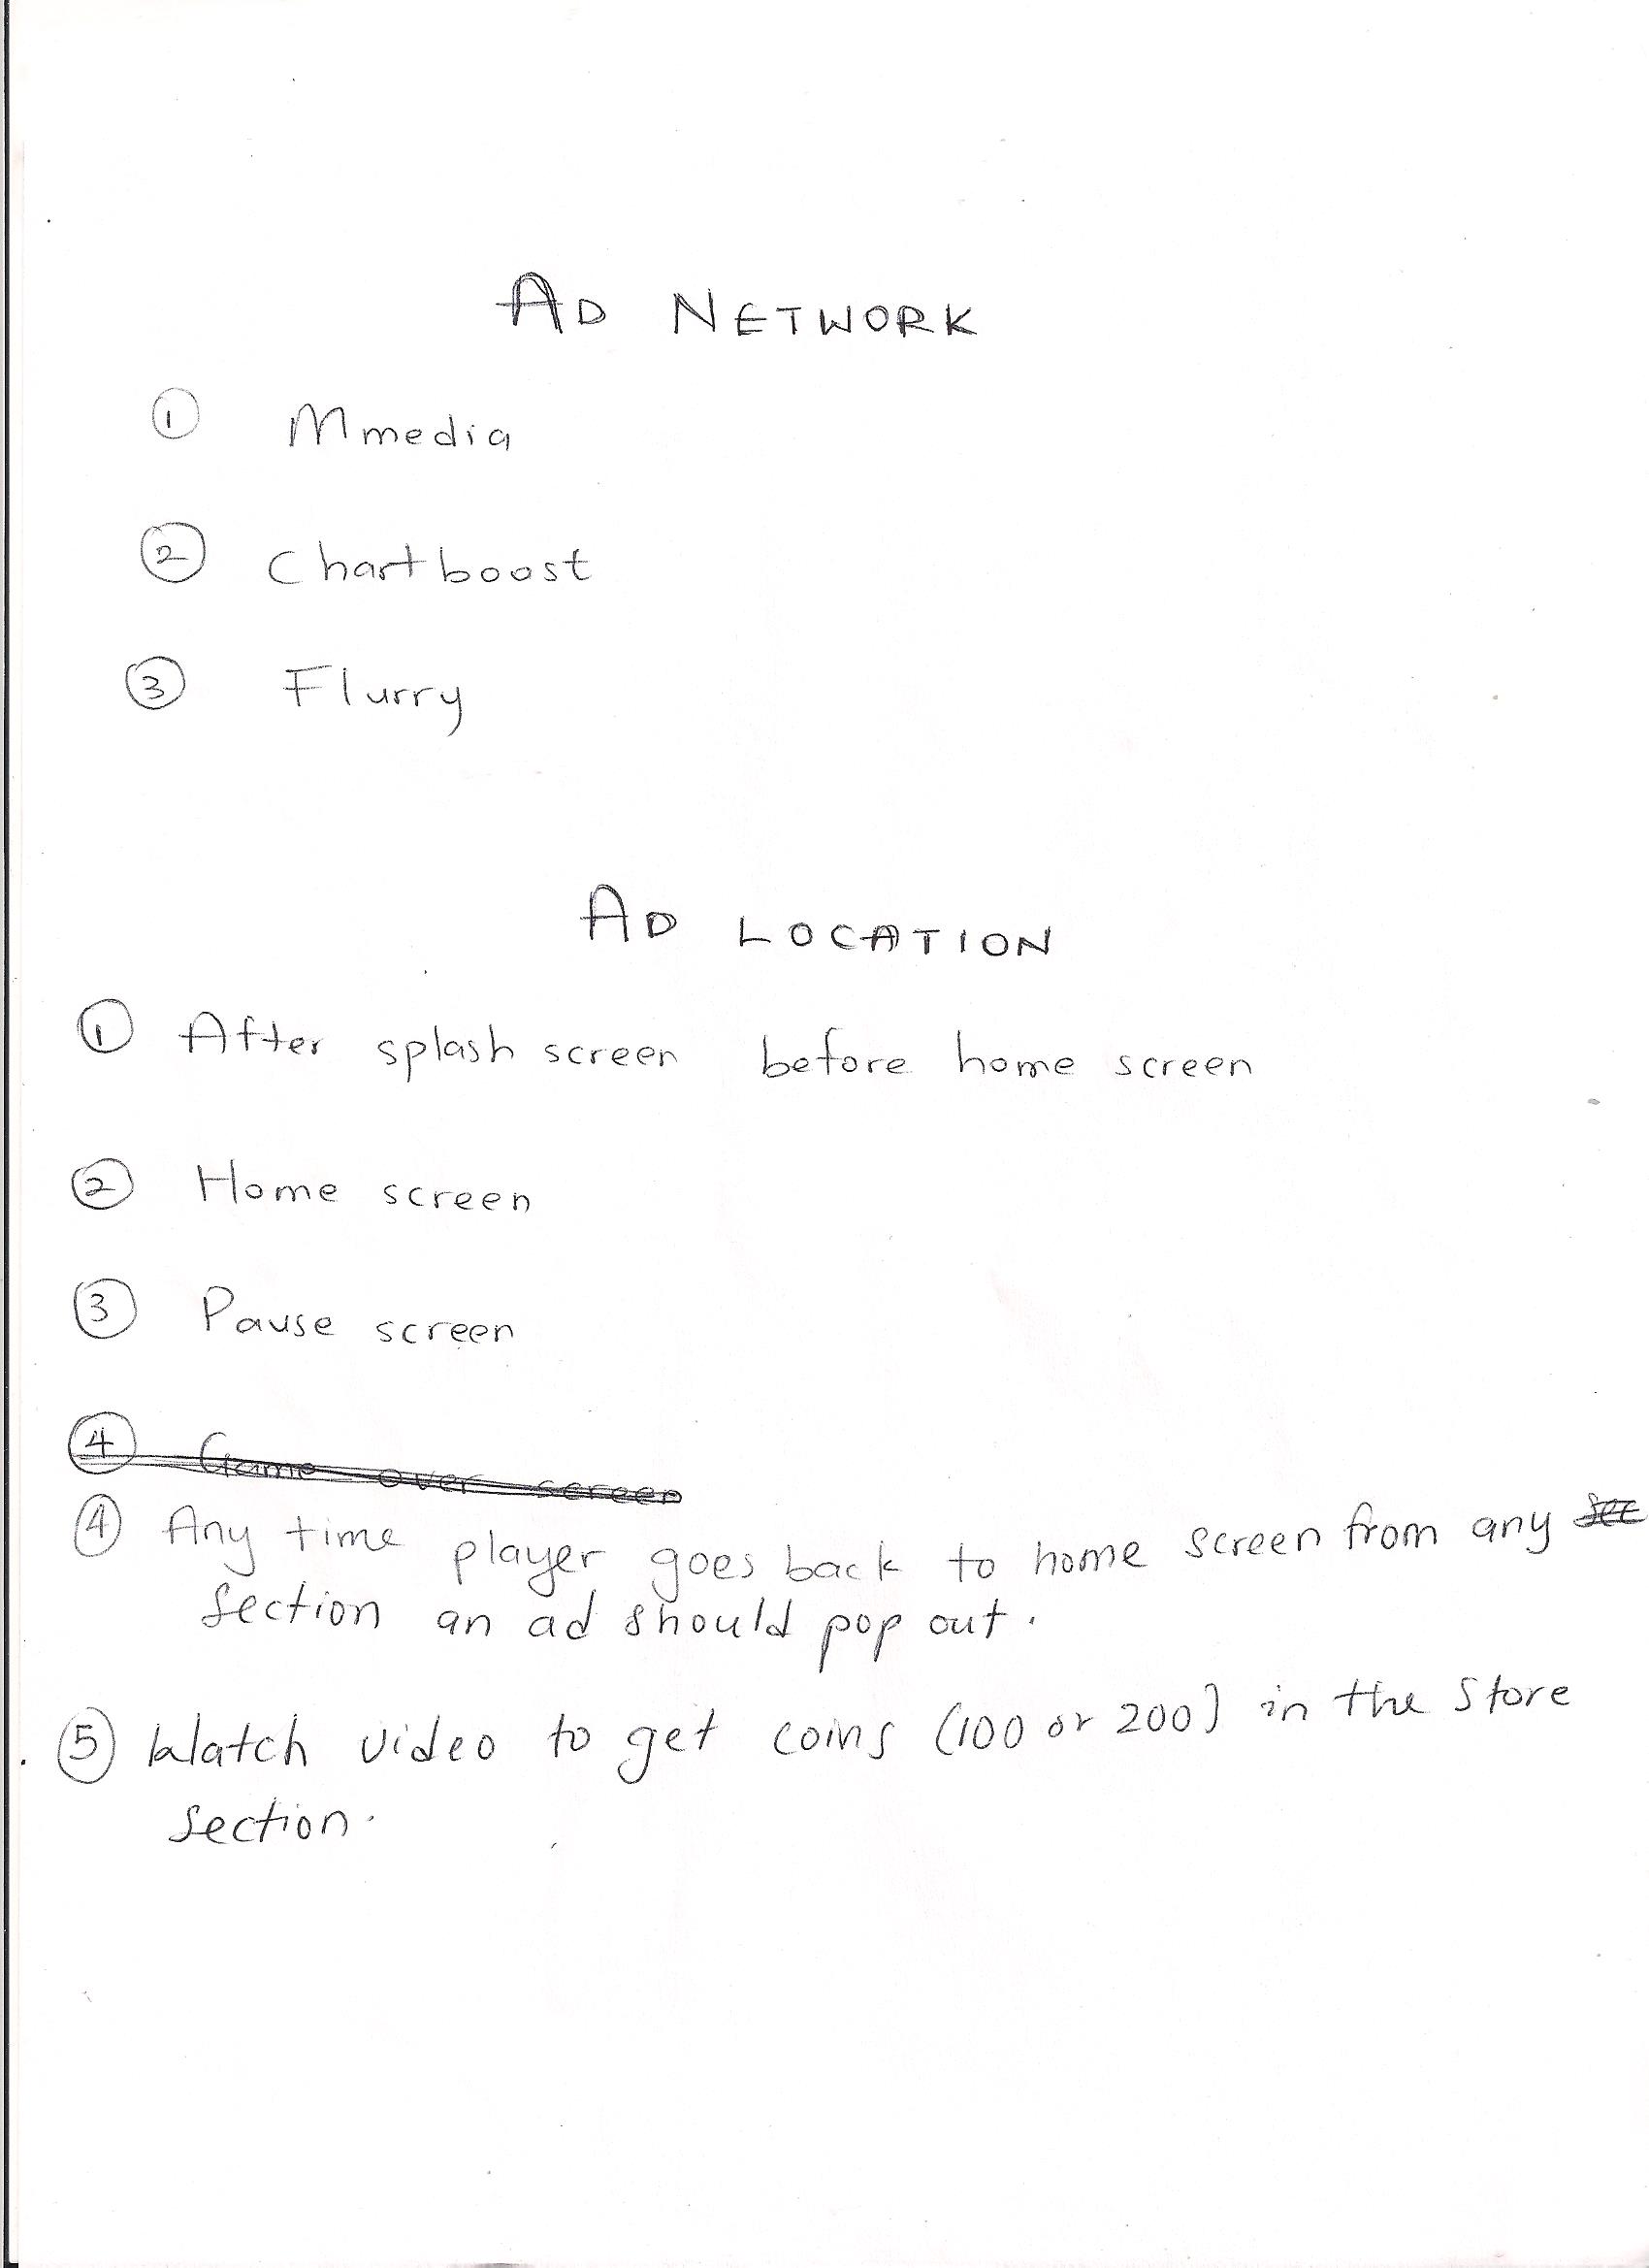 AD NETWORK
① Mmedia
② Chartboost
③ Flurry
AD LOCATION
① After splash screen before home screen
② Home screen
③ Pause screen
④ Game over screen
④ Any time player goes back to home screen from any sec
section an ad should pop out.
⑤ Watch video to get coins (100 or 200) in the store
section.